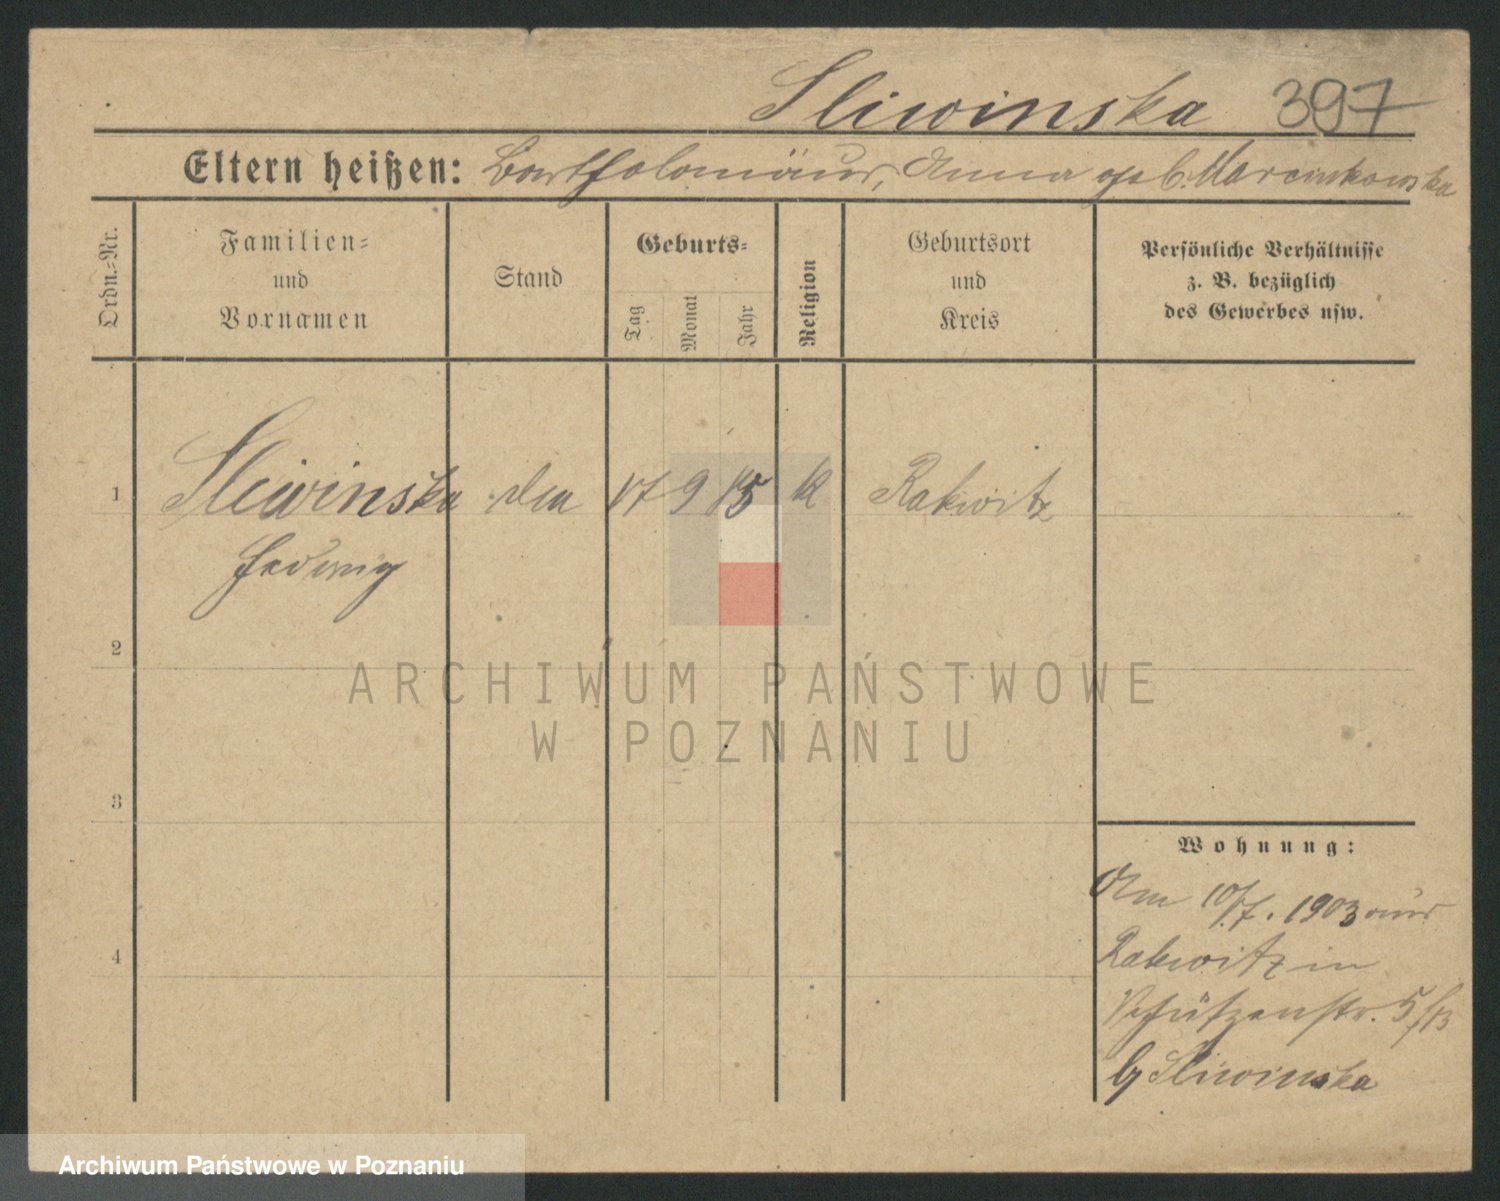 Sliwinska 397
Eltern heißen: Bartholomäus, Anna geb. Marcinkowska
Ordn.-Nr.
Familien-
und
Vornamen
Stand
Geburts-
Tag
Monat
Jahr
Religion
Geburtsort
und
Kreis
Persönliche Verhältnisse
z. B. bezüglich
des Gewerbes usw.
1 Sliwinska 17 9 K Rakwitz
Hedwig
2
ARCHIWUM PAŃSTWOWE
W POZNANIU
3
Wohnung:
Am 10/7. 1903 aus
4
Rakwitz in
Schützenstr. 5
Sliwinska
Archiwum Państwowe w Poznaniu